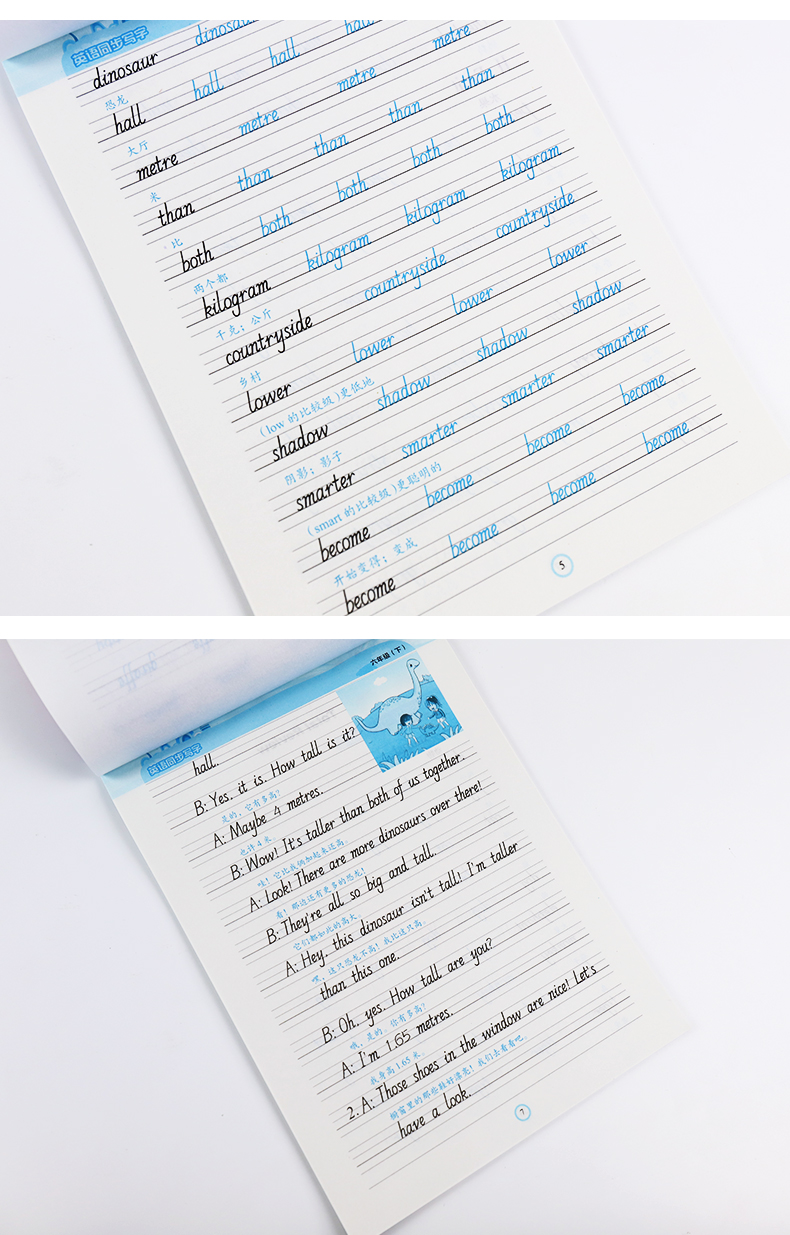 英语同步写字
dinosaur dinosaur hall
恐龙
hall hall hall metre
大厅
metre metre metre than
米
than than than than both
比
both both both both kilogram
两个都
kilogram kilogram kilogram countryside
千克；公斤
countryside countryside lower
乡村
lower lower lower shadow
(low 的比较级)更低地
shadow shadow shadow smarter
阴影；影子
smarter smarter smarter become
(smart 的比较级)更聪明的
become become become become
开始变得；变成
become become become
5
六年级（下）
英语同步写字
hall.
B: Yes, it is. How tall is it?
是的，它有多高？
A: Maybe 4 metres.
也许 4 米。
B: Wow! It's taller than both of us together.
哇！它比我俩加起来还高。
A: Look! There are more dinosaurs over there!
看！那边还有更多的恐龙！
B: They're all so big and tall.
它们都如此的高大。
A: Hey, this dinosaur isn't tall! I'm taller
嘿，这只恐龙不高！我比这只高。
than this one.
B: Oh, yes. How tall are you?
哦，是的。你有多高？
A: I'm 1.65 metres.
我身高1.65 米。
2. A: Those shoes in the window are nice! Let's
橱窗里的那些鞋好漂亮！我们去看看吧。
have a look.
7